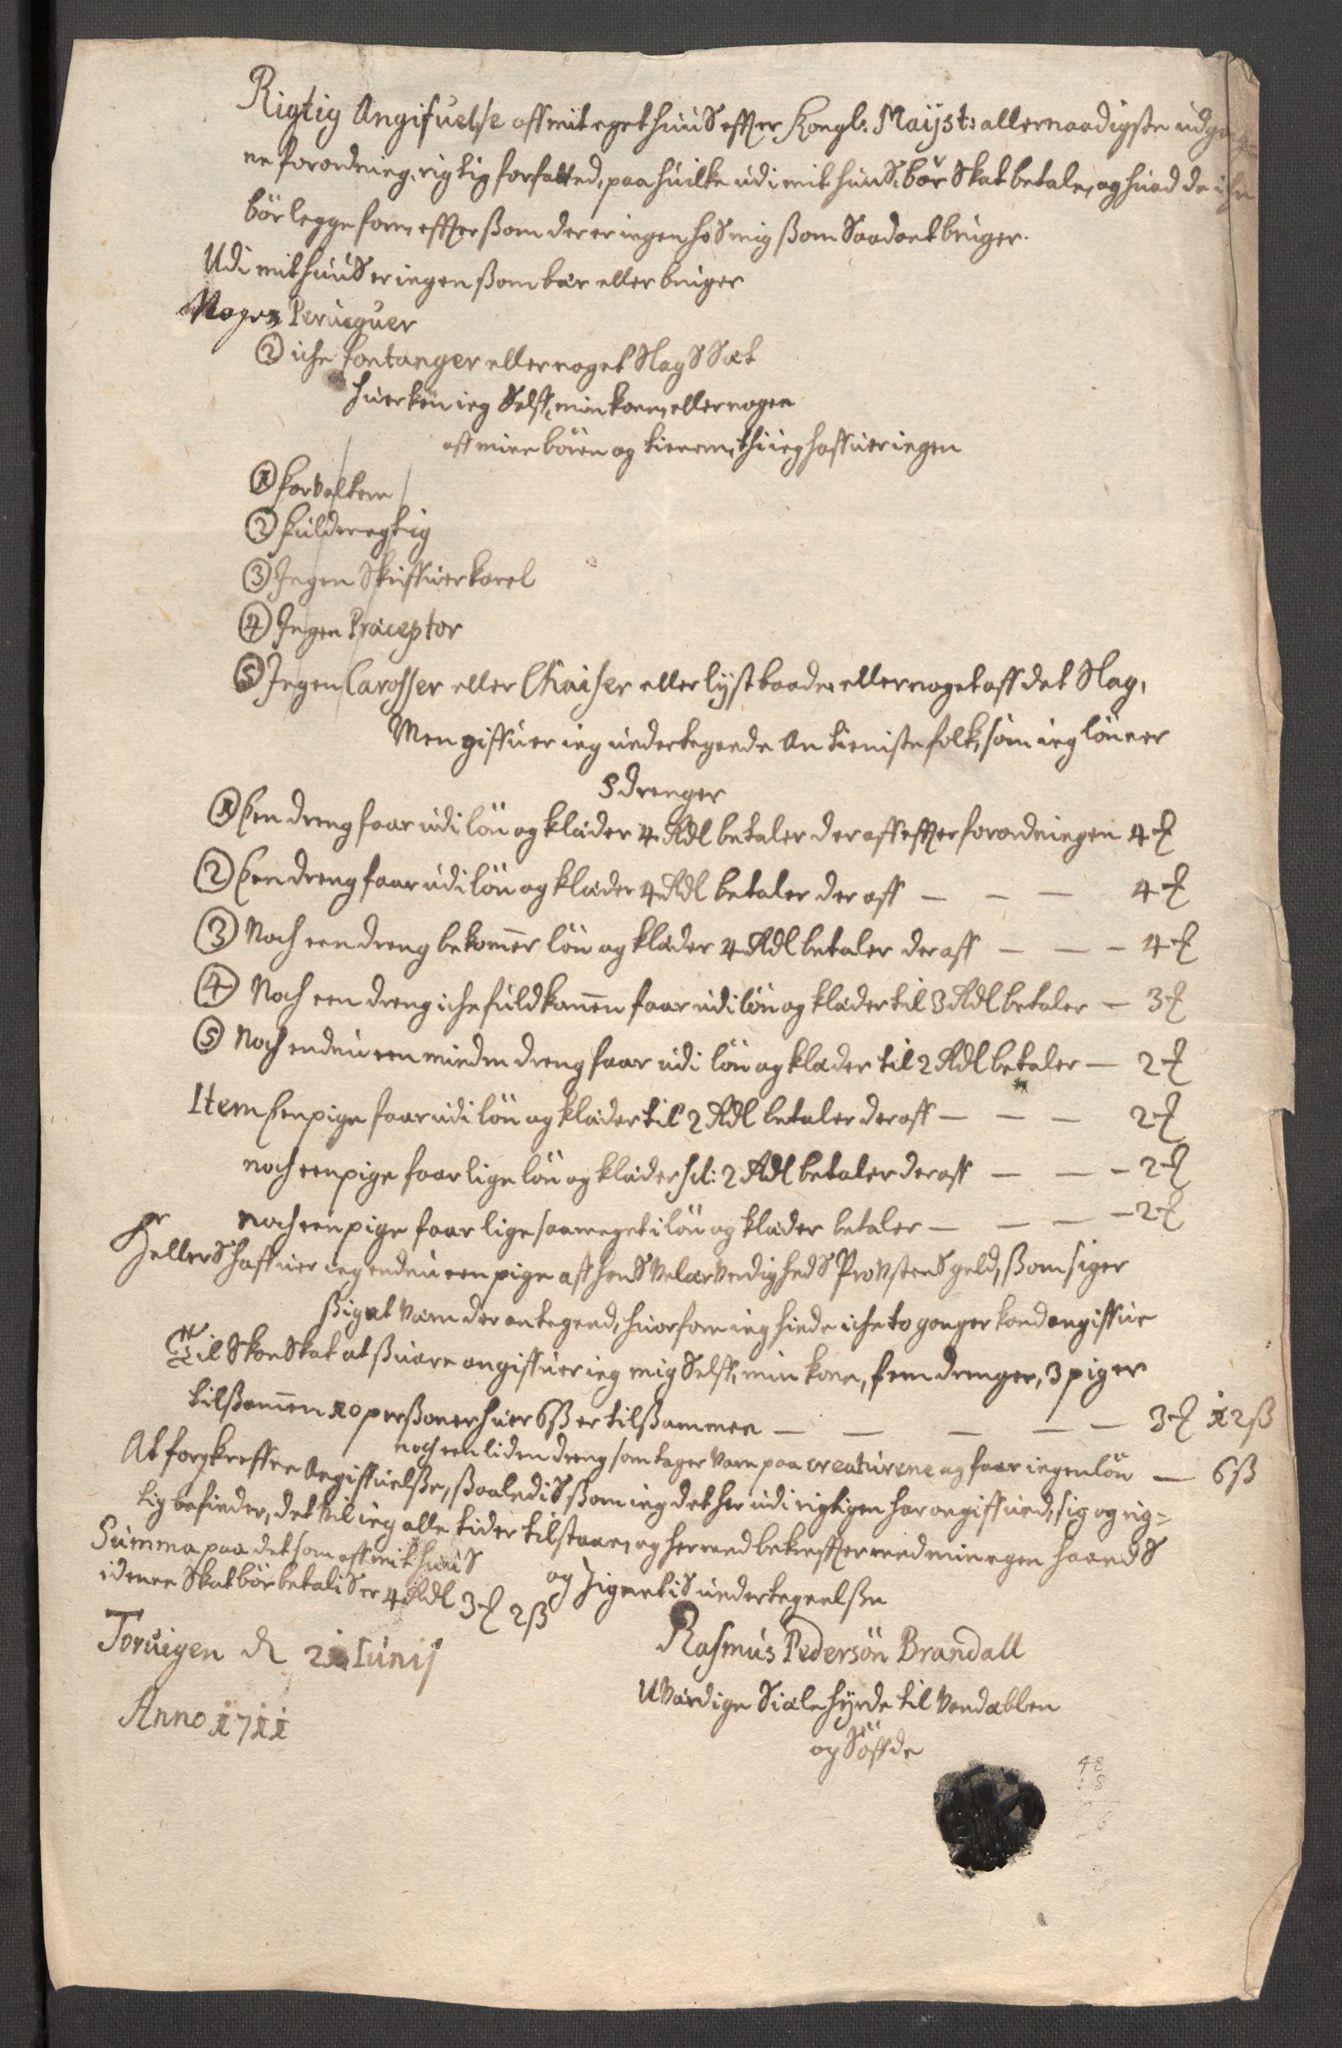 Rigtig Angifuelse aff mit eget huus effter Kongl: Mayst: allernaadigste udgang
ne forordning, rigtig forfatted, paa huilke udi mit huus bör Skat betale, og huad de iche
bör legge for, effterßom der er ingen hos mig ßom Saadant bruger.
Udi mit huus er ingen ßom bær eller bruger
Nogen Perucquer
2 iche fontanger eller noget Slags Sæt
huerken ieg Selff, min kone, eller nogen
aff mine börn og tienere, thi ieg haffuer ingen
1 forvaltere
2 fuldmegtig
3 Ingen Skriffuer karel
4 Ingen Præceptor
5 Ingen Carosser eller Chaiser eller lyst baader eller noget aff det Slag,
Men giffuer ieg undertegnede An tieniste folk, som ieg lönner
5 drenger
1 Een dreng faar udi lön og klæder 4 Rdl betaler der aff effter forordningen 4 ₰
2 Een dreng faar udi lön og klæder 4 Rdl betaler der aff — — — 4 ₰
3 Noch een dreng bekommer lön og klæder 4 Rdl betaler der aff — — — 4 ₰
4 Noch een dreng iche fuldkommen faar udi lön og klæder til 3 Rdl betaler — 3 ₰
5 Noch endnu een minden dreng faar udi lön og klæder til 2 Rdl betaler — 2 ₰
Item Een pige faar udi lön og klæder til 2 Rdl betaler der aff — — — 2 ₰
noch een pige faar lige lön og klæder sc: 2 Rdl betaler der aff — — — 2 ₰
noch een pige faar lige saa meget i lön og klæder betaler — — — — 2 ₰
hellers haffuer ieg endnu een pige aff hans velærverdigheds Provstens gield, ßom siger
ßig at være der antegned, huorfore ieg hinde iche to ganger kand angiffue
Til Skoe Skat at ßuare angiffuer ieg mig Selff, min kone, fem drenger, 3 piger
tilßammen 10 perßoner huer 6 ß er tilßammen — — — — — 3 ₰ 12 ß
noch een liden dreng som tager vare paa creaturene og faar ingen lön — 6 ß
At forskreffne Angiffuelße, ßaaledis ßom ieg det her udi rigtigen har angiffued, sig og rig=
tig befinder, det vil ieg alle tider tilstaae, og hermed bekreffter med min egen haands
og Zignetis undertegnelße
Summa paa det som aff mit huus
i denne Skat bör betalis er 4 Rdl 3 ₰ 2 ß
Torvigen d 21 Iunij
Anno 1711
Rasmus Pedersön Brandall
Uværdige Siæle hyrde til Vendabblen
og Söffde
48
18